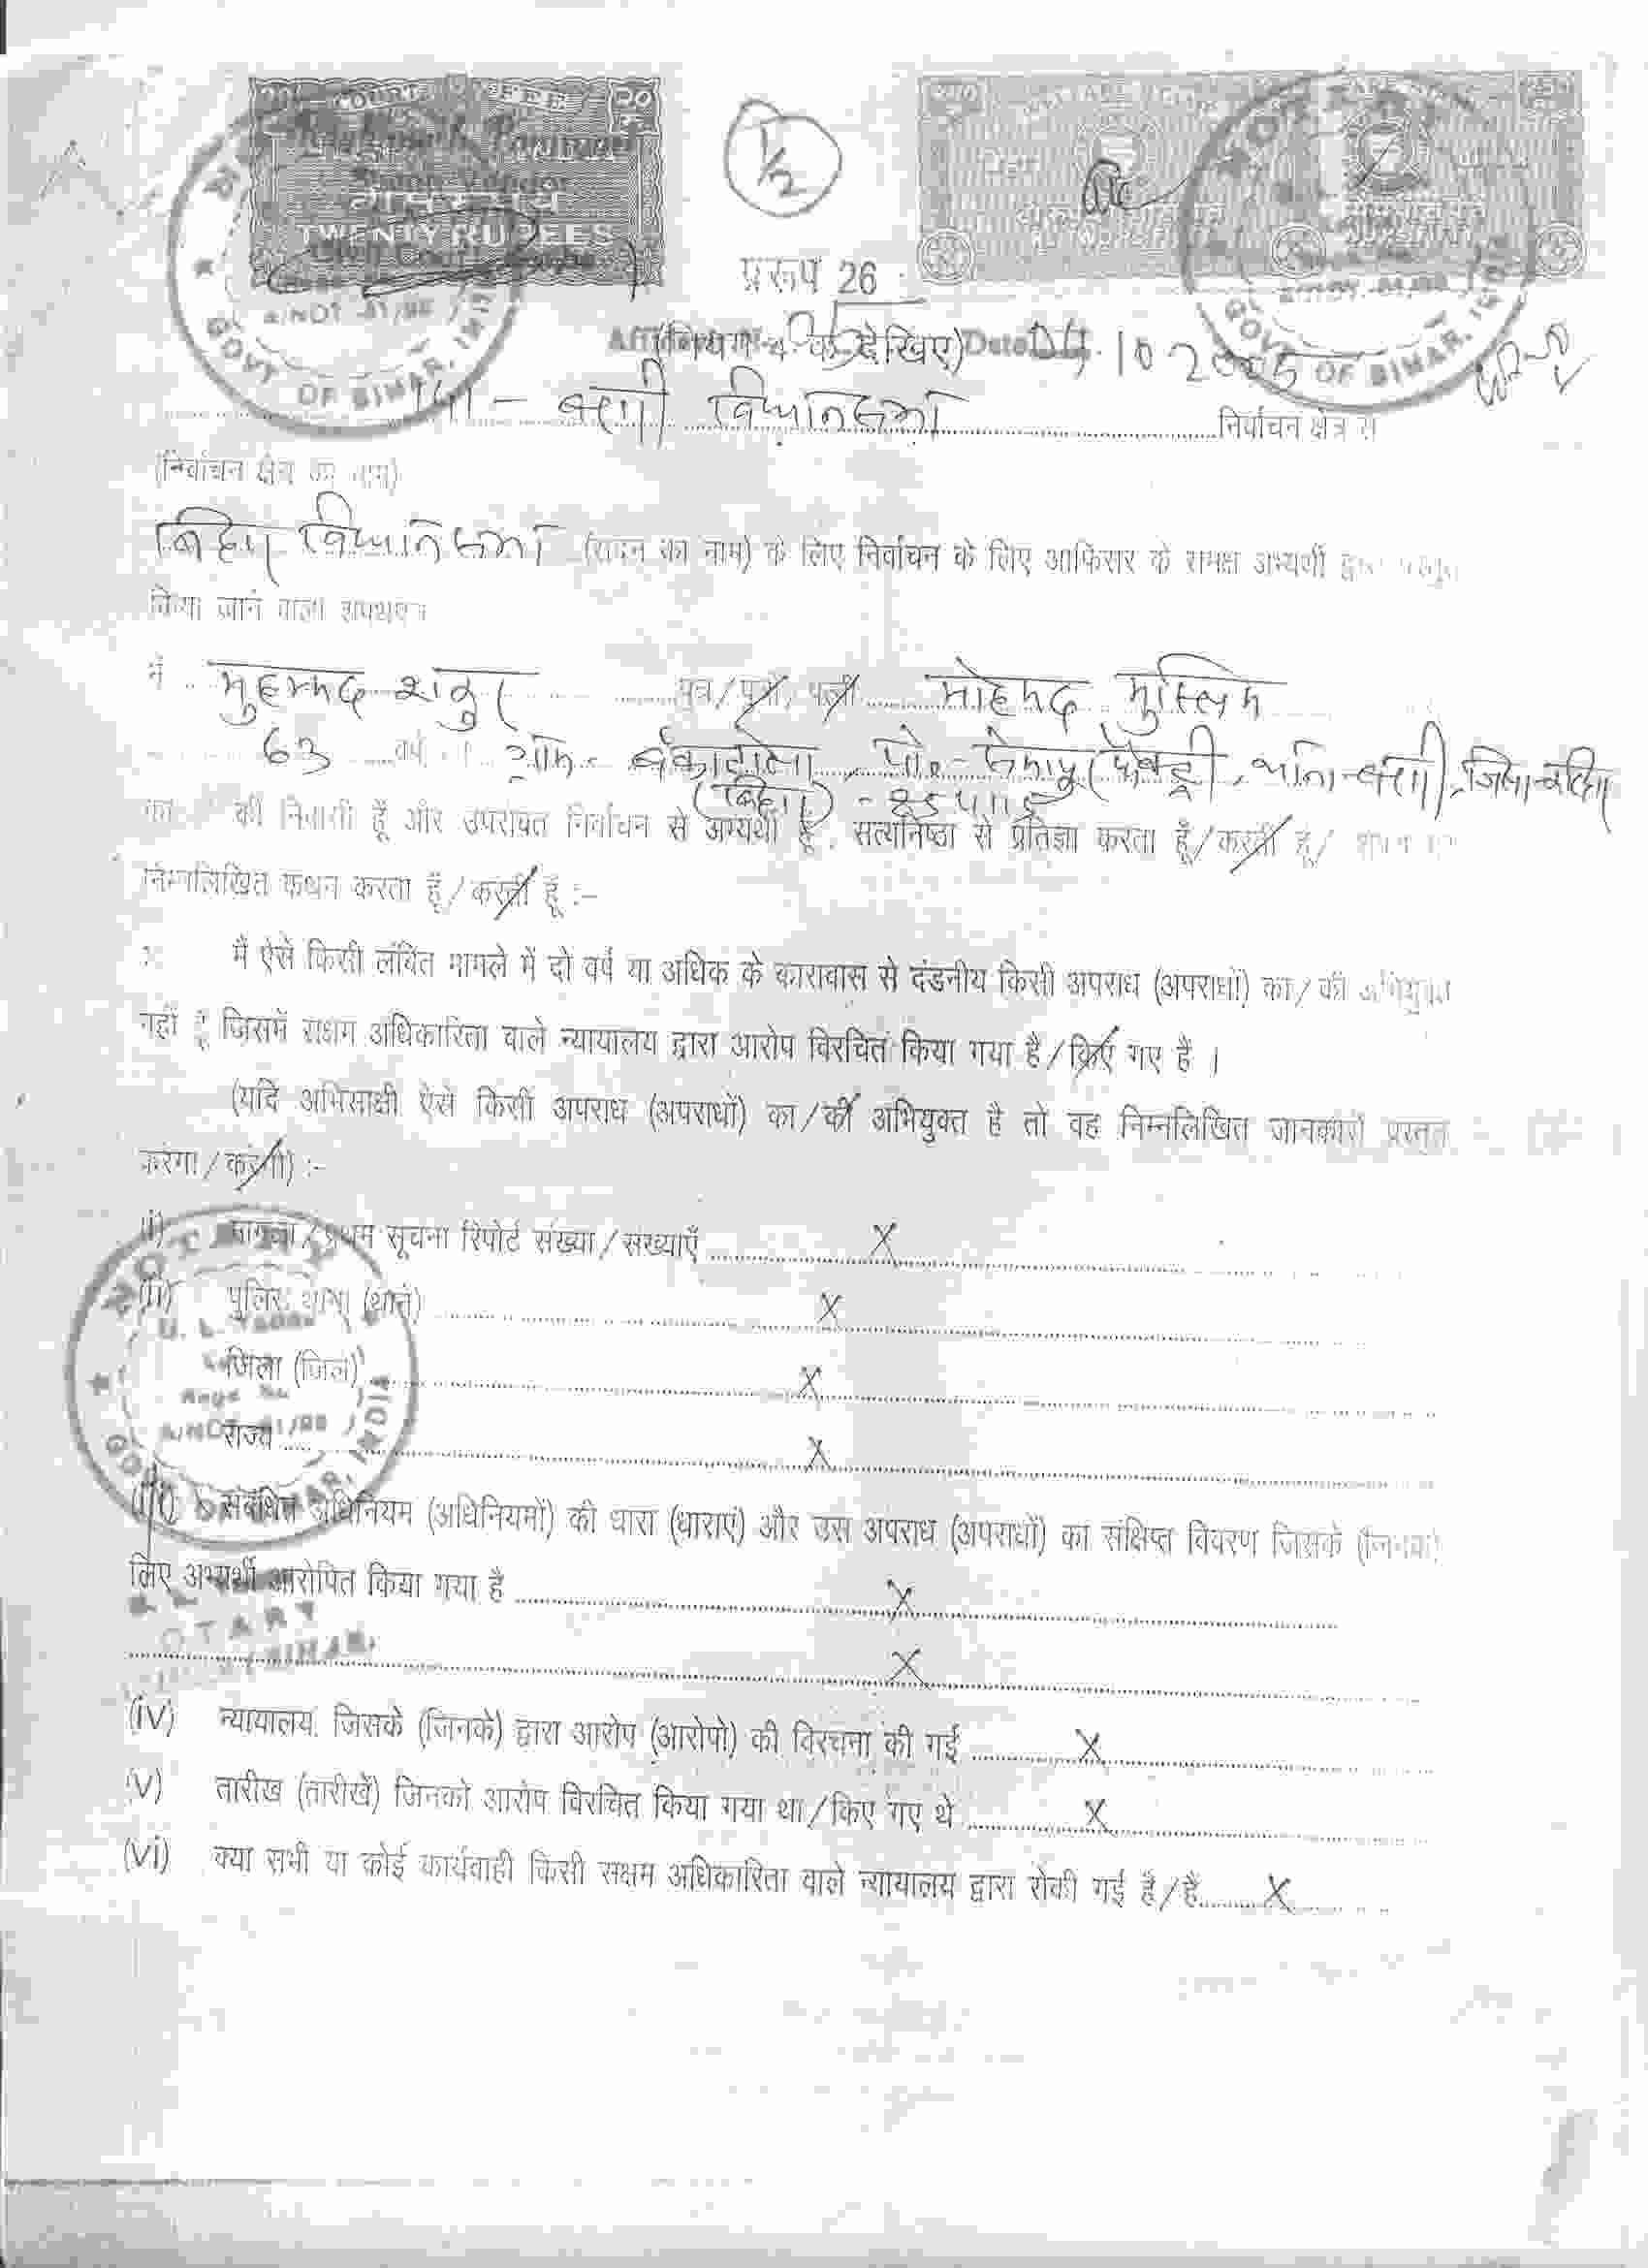 COURT FEE 20
INDIA
बीस रुपये
TWENTY RUPEES
A/NOT 01/98
GOVT. OF BIHAR, INDIA
1/2
NOTARY
GOVT. OF BIHAR, INDIA
प्ररूप 26
(नियम 4 क देखिए) Date 04.10.2005
विधानसभा निर्वाचन क्षेत्र से
(निर्वाचन क्षेत्र का नाम)
बिहार विधानसभा (सदन का नाम) के लिए निर्वाचन के लिए आफिसर के समक्ष अभ्यर्थी द्वारा प्रस्तुत
किया जाने वाला शपथपत्र
मैं मुहम्मद शकुर पुत्र/पुत्री/पत्नी मोहम्मद मुस्लिम
63 वर्ष ग्राम- पो०-
(बिहार)
की निवासी हूँ और उपरोक्त निर्वाचन से अभ्यर्थी हूँ, सत्यनिष्ठा से प्रतिज्ञा करता हूँ/करती हूं/
निम्नलिखित कथन करता हूँ/करती हूँ :-
मैं ऐसे किसी लंबित मामले में दो वर्ष या अधिक के कारावास से दंडनीय किसी अपराध (अपराधों) का/की अभियुक्त
नहीं हूँ जिसमें सक्षम अधिकारिता वाले न्यायालय द्वारा आरोप विरचित किया गया है/किए गए हैं ।
(यदि अभिसाक्षी ऐसे किसी अपराध (अपराधों) का/की अभियुक्त है तो वह निम्नलिखित जानकारी प्रस्तुत
करेगा/करेगी) :-
(i) मामला/प्रथम सूचना रिपोर्ट संख्या/संख्याएँ X
(ii) पुलिस थाना (थाने) X
जिला (जिले) X
राज्य X
NOTARY
Regd. No.
A/NOT 01/98
GOVT. OF BIHAR, INDIA
(iii) संबंधित अधिनियम (अधिनियमों) की धारा (धाराएं) और उस अपराध (अपराधों) का संक्षिप्त विवरण जिसके (जिनके)
लिए अभ्यर्थी आरोपित किया गया है X
NOTARY
X
(iv) न्यायालय जिसके (जिनके) द्वारा आरोप (आरोपो) की विरचना की गई X
(v) तारीख (तारीखें) जिनको आरोप विरचित किया गया था/किए गए थे X
(vi) क्या सभी या कोई कार्यवाही किसी सक्षम अधिकारिता वाले न्यायालय द्वारा रोकी गई है/हैं X